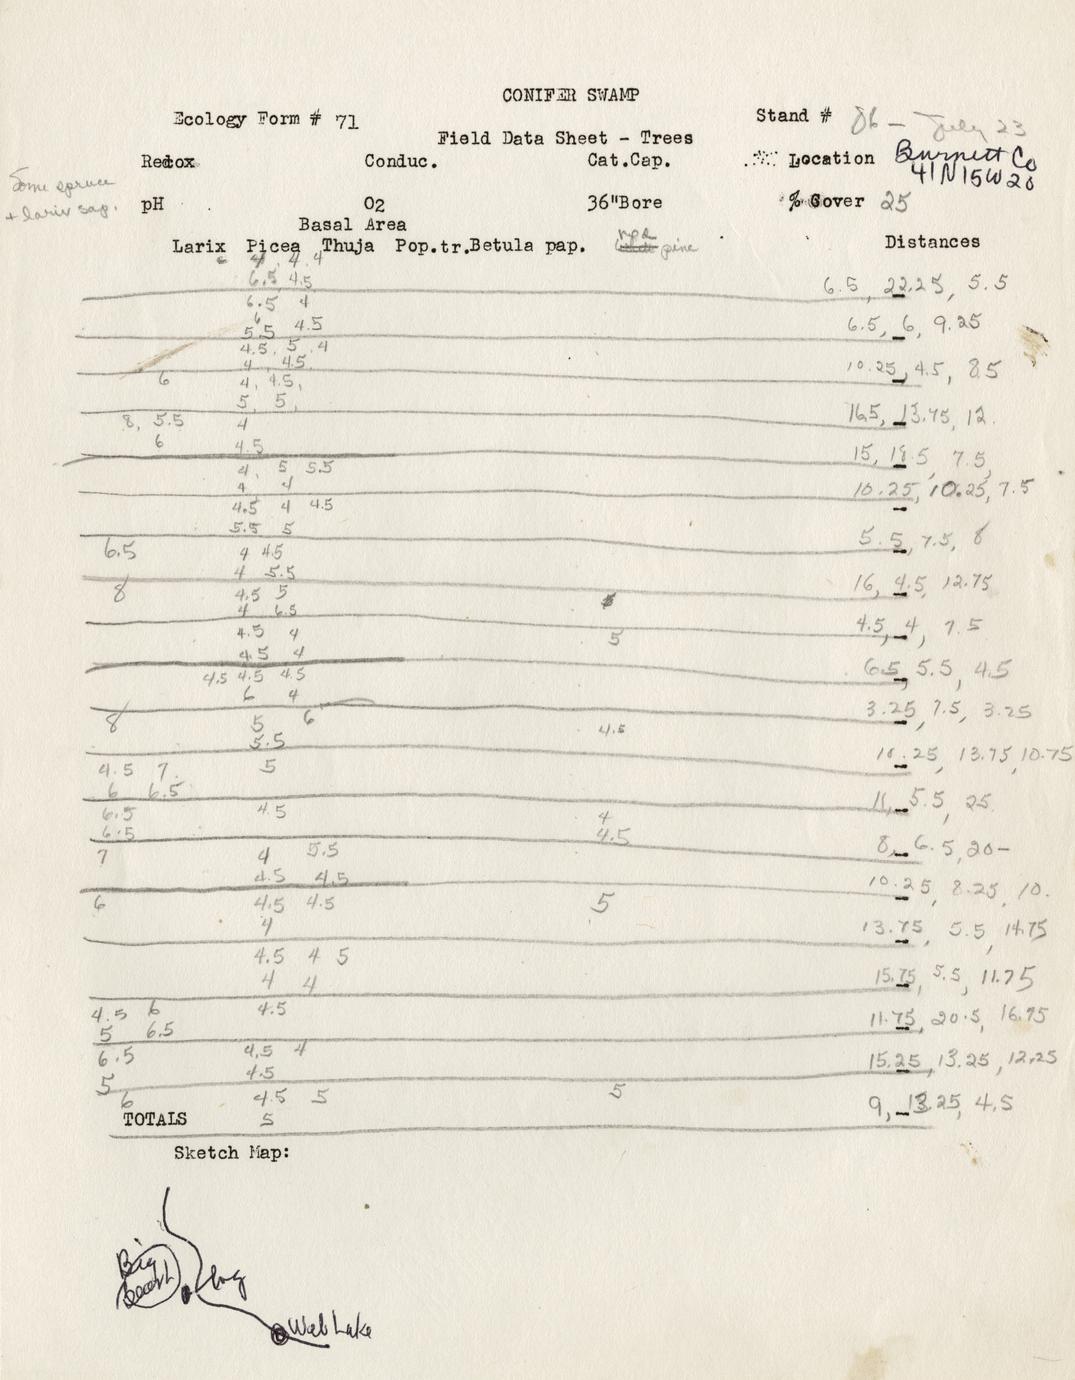 CONIFER SWAMP
Ecology Form # 71
Stand # 86 - July 23
Field Data Sheet - Trees
Redox Conduc. Cat.Cap. Location Burnett Co
41N15W20
Some spruce
+ larix sap.
pH O2 36"Bore % Cover 25
Basal Area
Larix Picea Thuja Pop.tr. Betula pap. pine Distances
4, 4.4
6.5, 4.5 6.5, 22.25, 5.5
6.5 4
6
5.5 4.5 6.5, 6, 9.25
4.5, 5, 4
4, 4.5, 10.25, 4.5, 8.5
6 4, 4.5,
5, 5, 16.5, 13.75, 12.
8, 5.5 4
6 4.5 15, 18.5, 7.5,
4, 5 5.5
4 4 10.25, 10.25, 7.5
4.5 4 4.5
5.5 5 5.5, 7.5, 8
6.5 4 4.5
4 5.5 16, 4.5, 12.75
8 4.5 5
4 6.5 4.5, 4, 7.5
4.5 4 5
4.5 4 6.5, 5.5, 4.5
4.5 4.5 4.5
6 4 3.25, 7.5, 3.25
8 5 6 4.5
5.5 .25, 13.75, 10.75
4.5 7. 5
6 6.5 11, 5.5, 25
6.5 4.5 4
6.5 4.5 8, 6.5, 20-
7 4 5.5
4.5 4.5 10.25, 8.25, 10.
6 4.5 4.5 5
4 13.75, 5.5, 14.75
4.5 4 5
4 4 15.75, 5.5, 11.75
4.5 6 4.5
5 6.5 11.75, 20.5, 16.75
6.5 4.5 4
5 4.5 15.25, 13.25, 12.25
6 4.5 5 5
TOTALS 5 9, 13.25, 4.5
Sketch Map:
Big
bog
Web Lake